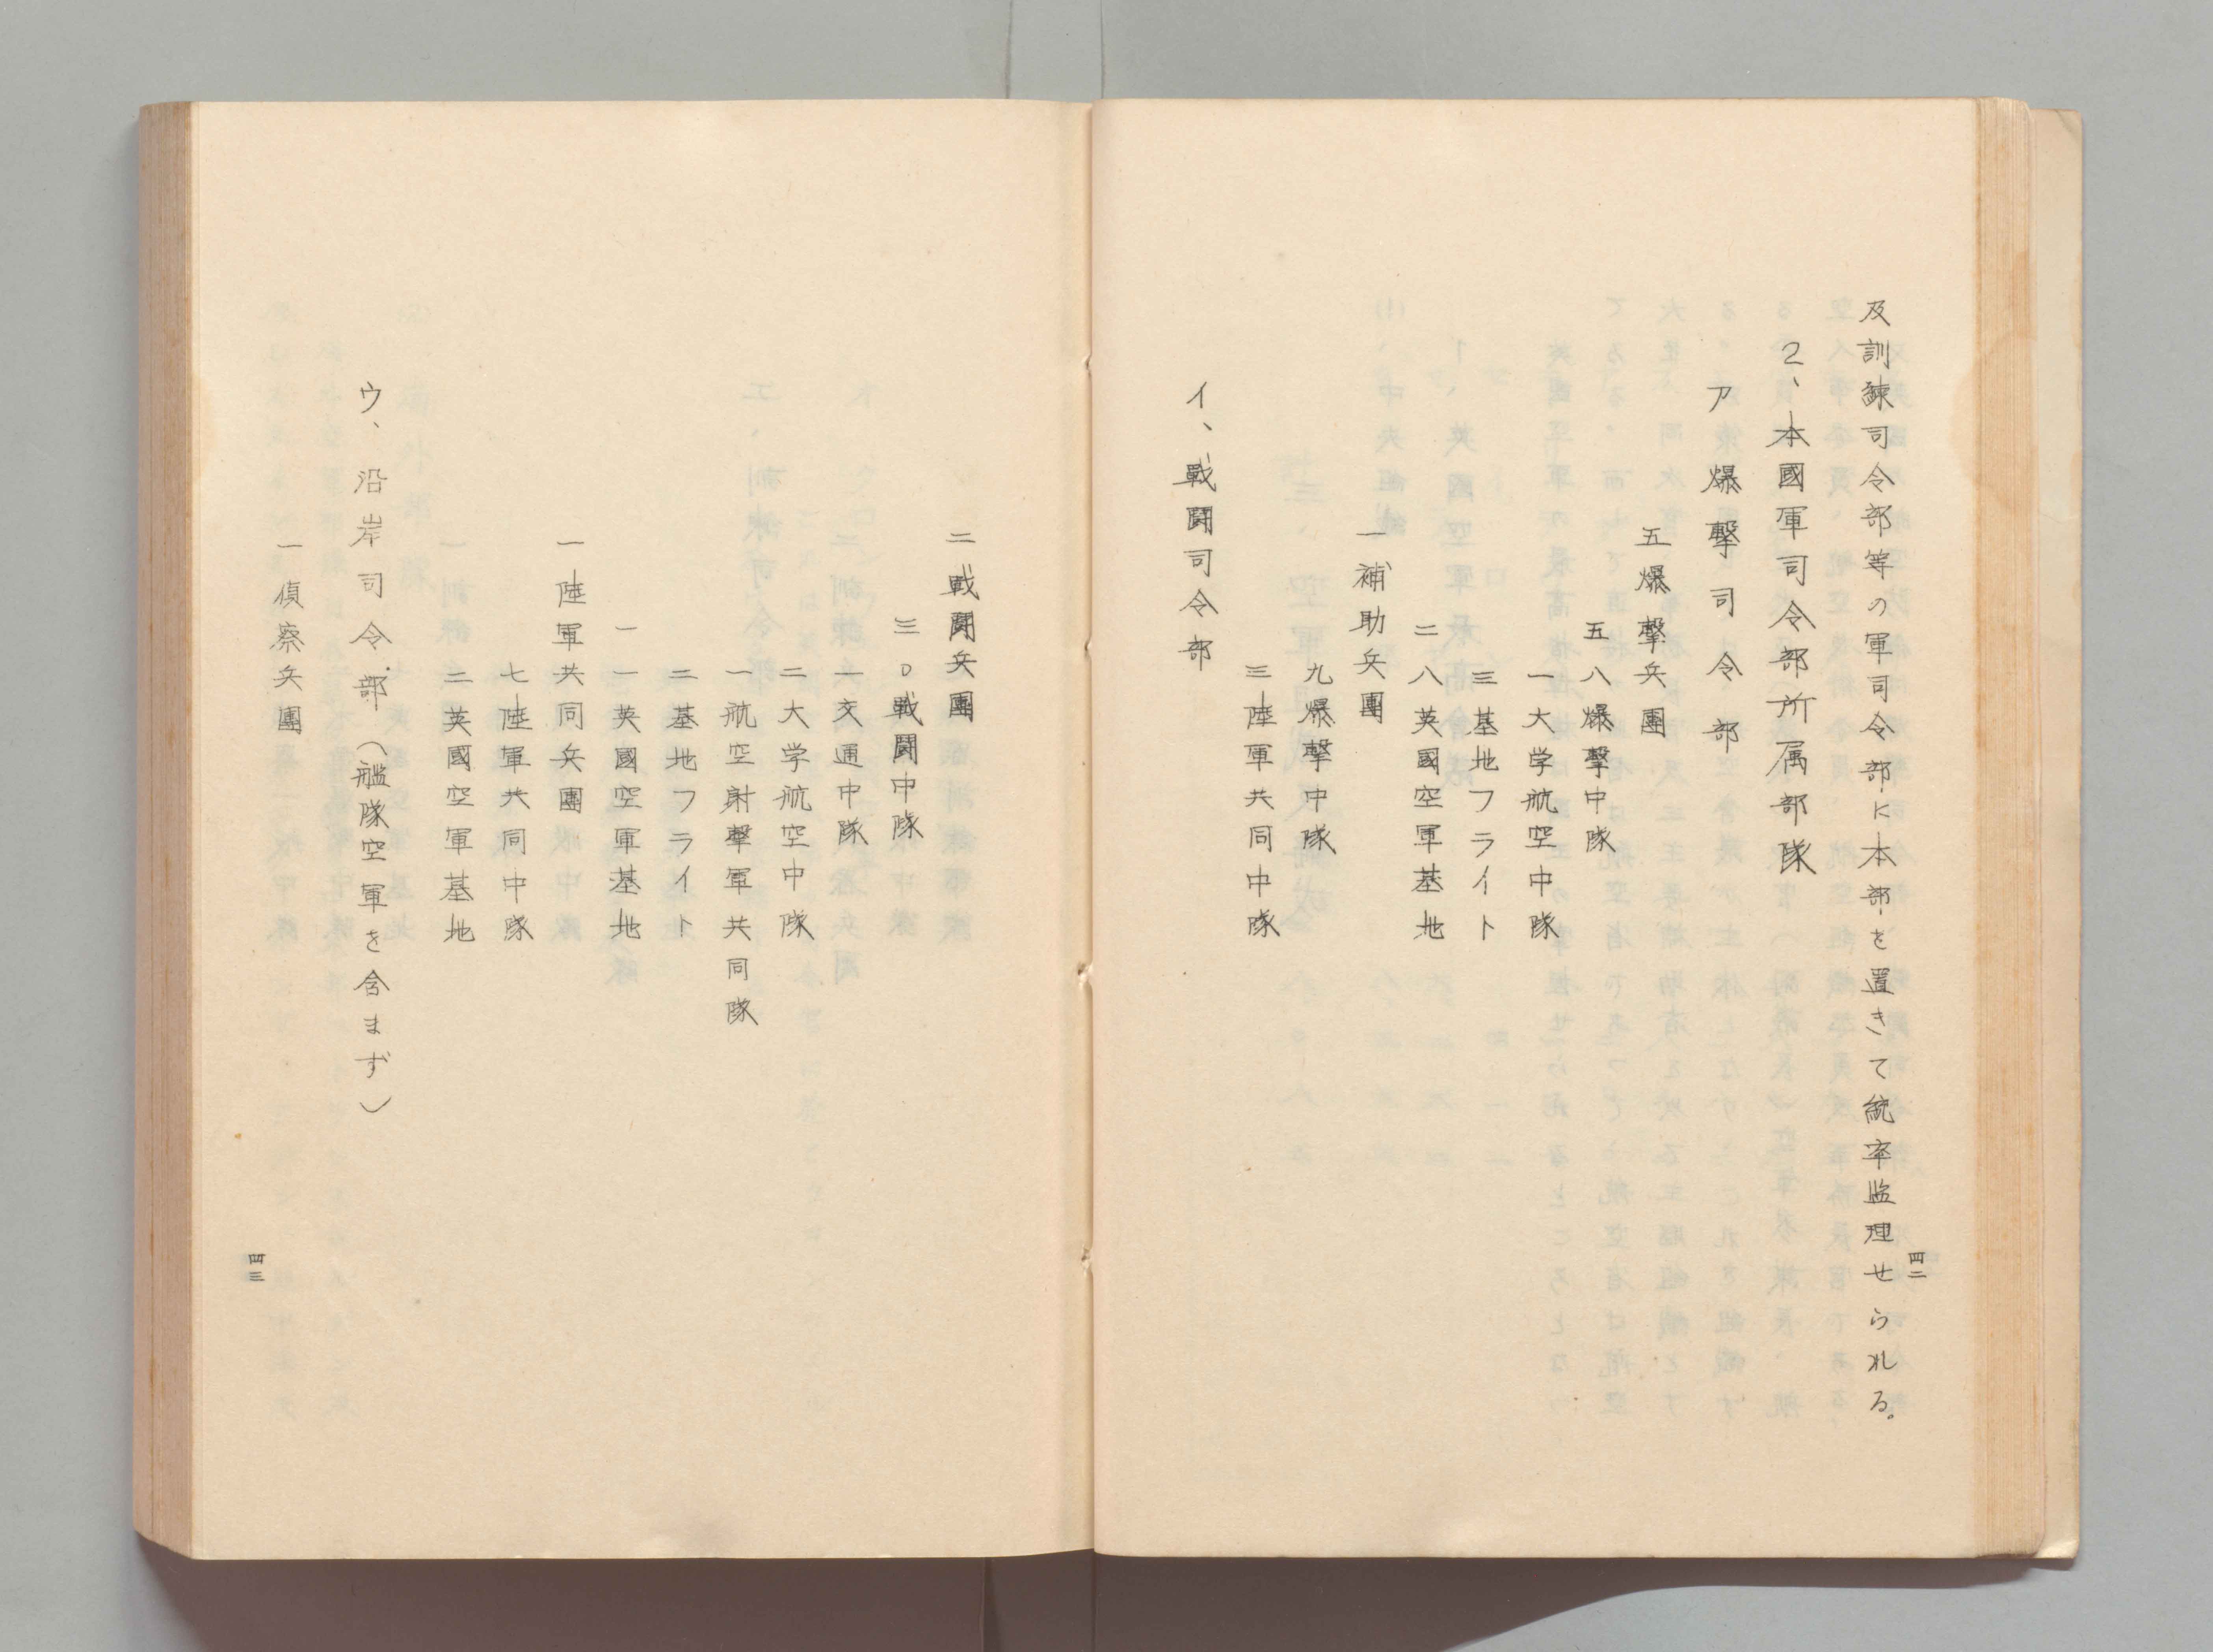 及訓練司令部等の軍司令部に本部を置きて統率監理せられる。
2、本國軍司令部所属部隊
ア 爆撃司令部
五爆撃兵團
五八爆撃中隊
一大学航空中隊
三基地フライト
二八英國空軍基地
一補助兵團
九爆撃中隊
三陸軍共同中隊
イ、戦闘司令部
四二
二戦闘兵團
三〇戦闘中隊
一交通中隊
二大学航空中隊
一航空射撃軍共同隊
二基地フライト
一一英國空軍基地
一陸軍共同兵團
七陸軍共同中隊
二英國空軍基地
ウ、沿岸司令部（艦隊空軍を含まず）
一偵察兵團
四三